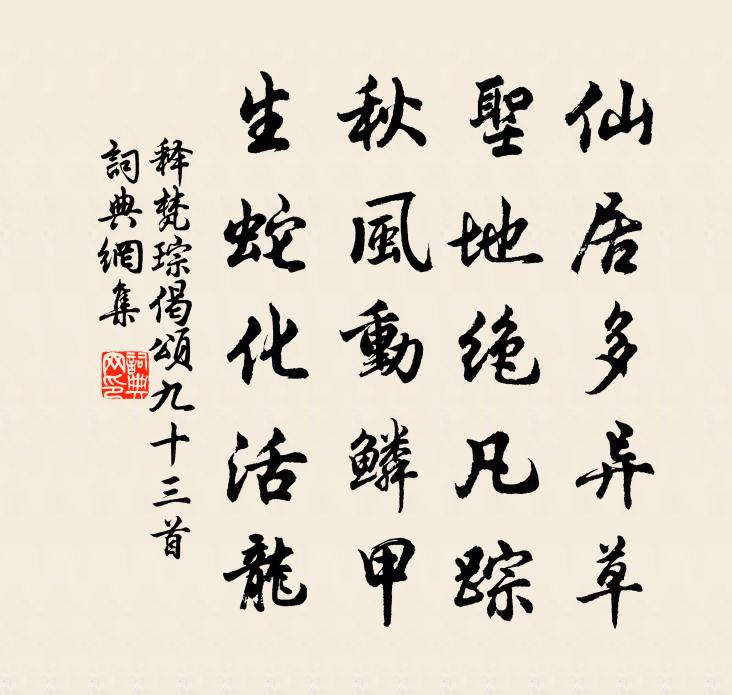 仙居多异草
聖地绝凡踪
秋風動鱗甲
生蛇化活龍
释梵琮偈頌九十三首
詞典網集
詞典网印